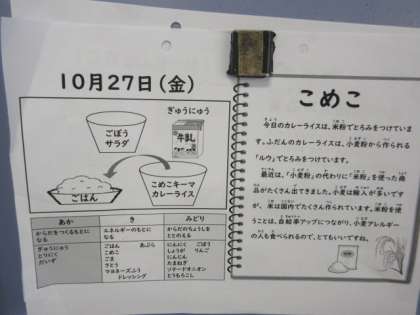 10月27日(金)
ごぼう
サラダ
ぎゅうにゅう
牛乳
ごはん
こめこキーマ
カレーライス
あか
き
みどり
からだをつくるもとに
なる
エネルギーのもとに
なる
からだのちょうしを
ととのえる
ぎゅうにゅう
とりにく
だいず
ごはん あぶら
こめこ
ごま
さとう
マヨネーズふう
ドレッシング
にんにく ごぼう
しょうが りんご
にんじん
たまねぎ
ソテードオニオン
とうもろこし
こめこ
今日のカレーライスは、米粉でとろみをつけていま
す。ふだんのカレーライスは、小麦粉から作られる
「ルウ」でとろみをつけています。
最近は、「小麦粉」の代わりに「米粉」を使った商
品がたくさん出てきました。小麦は輸入が多いです
が、米は国内でたくさん作られています。米粉を使
うことは、自給率アップにつながり、小麦アレルギー
の人も食べられるので、とてもいいですね。